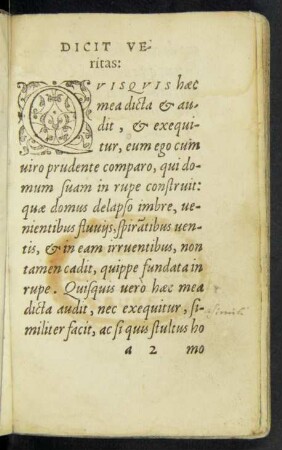 DICIT VE-
ritas:
QVISQVIS hæc
mea dicta & au-
dit, & exequi-
tur, eum ego cum
uiro prudente comparo, qui do-
mum suam in rupe construit:
quæ domus delapso imbre, ue-
nientibus fluuijs, spirātibus uen-
tis, & in eam irruentibus, non
tamen cadit, quippe fundata in
rupe. Quisquis uerò hæc mea
dicta audit, nec exequitur, si-
militer facit, ac si quis stultus ho
a 2 mo